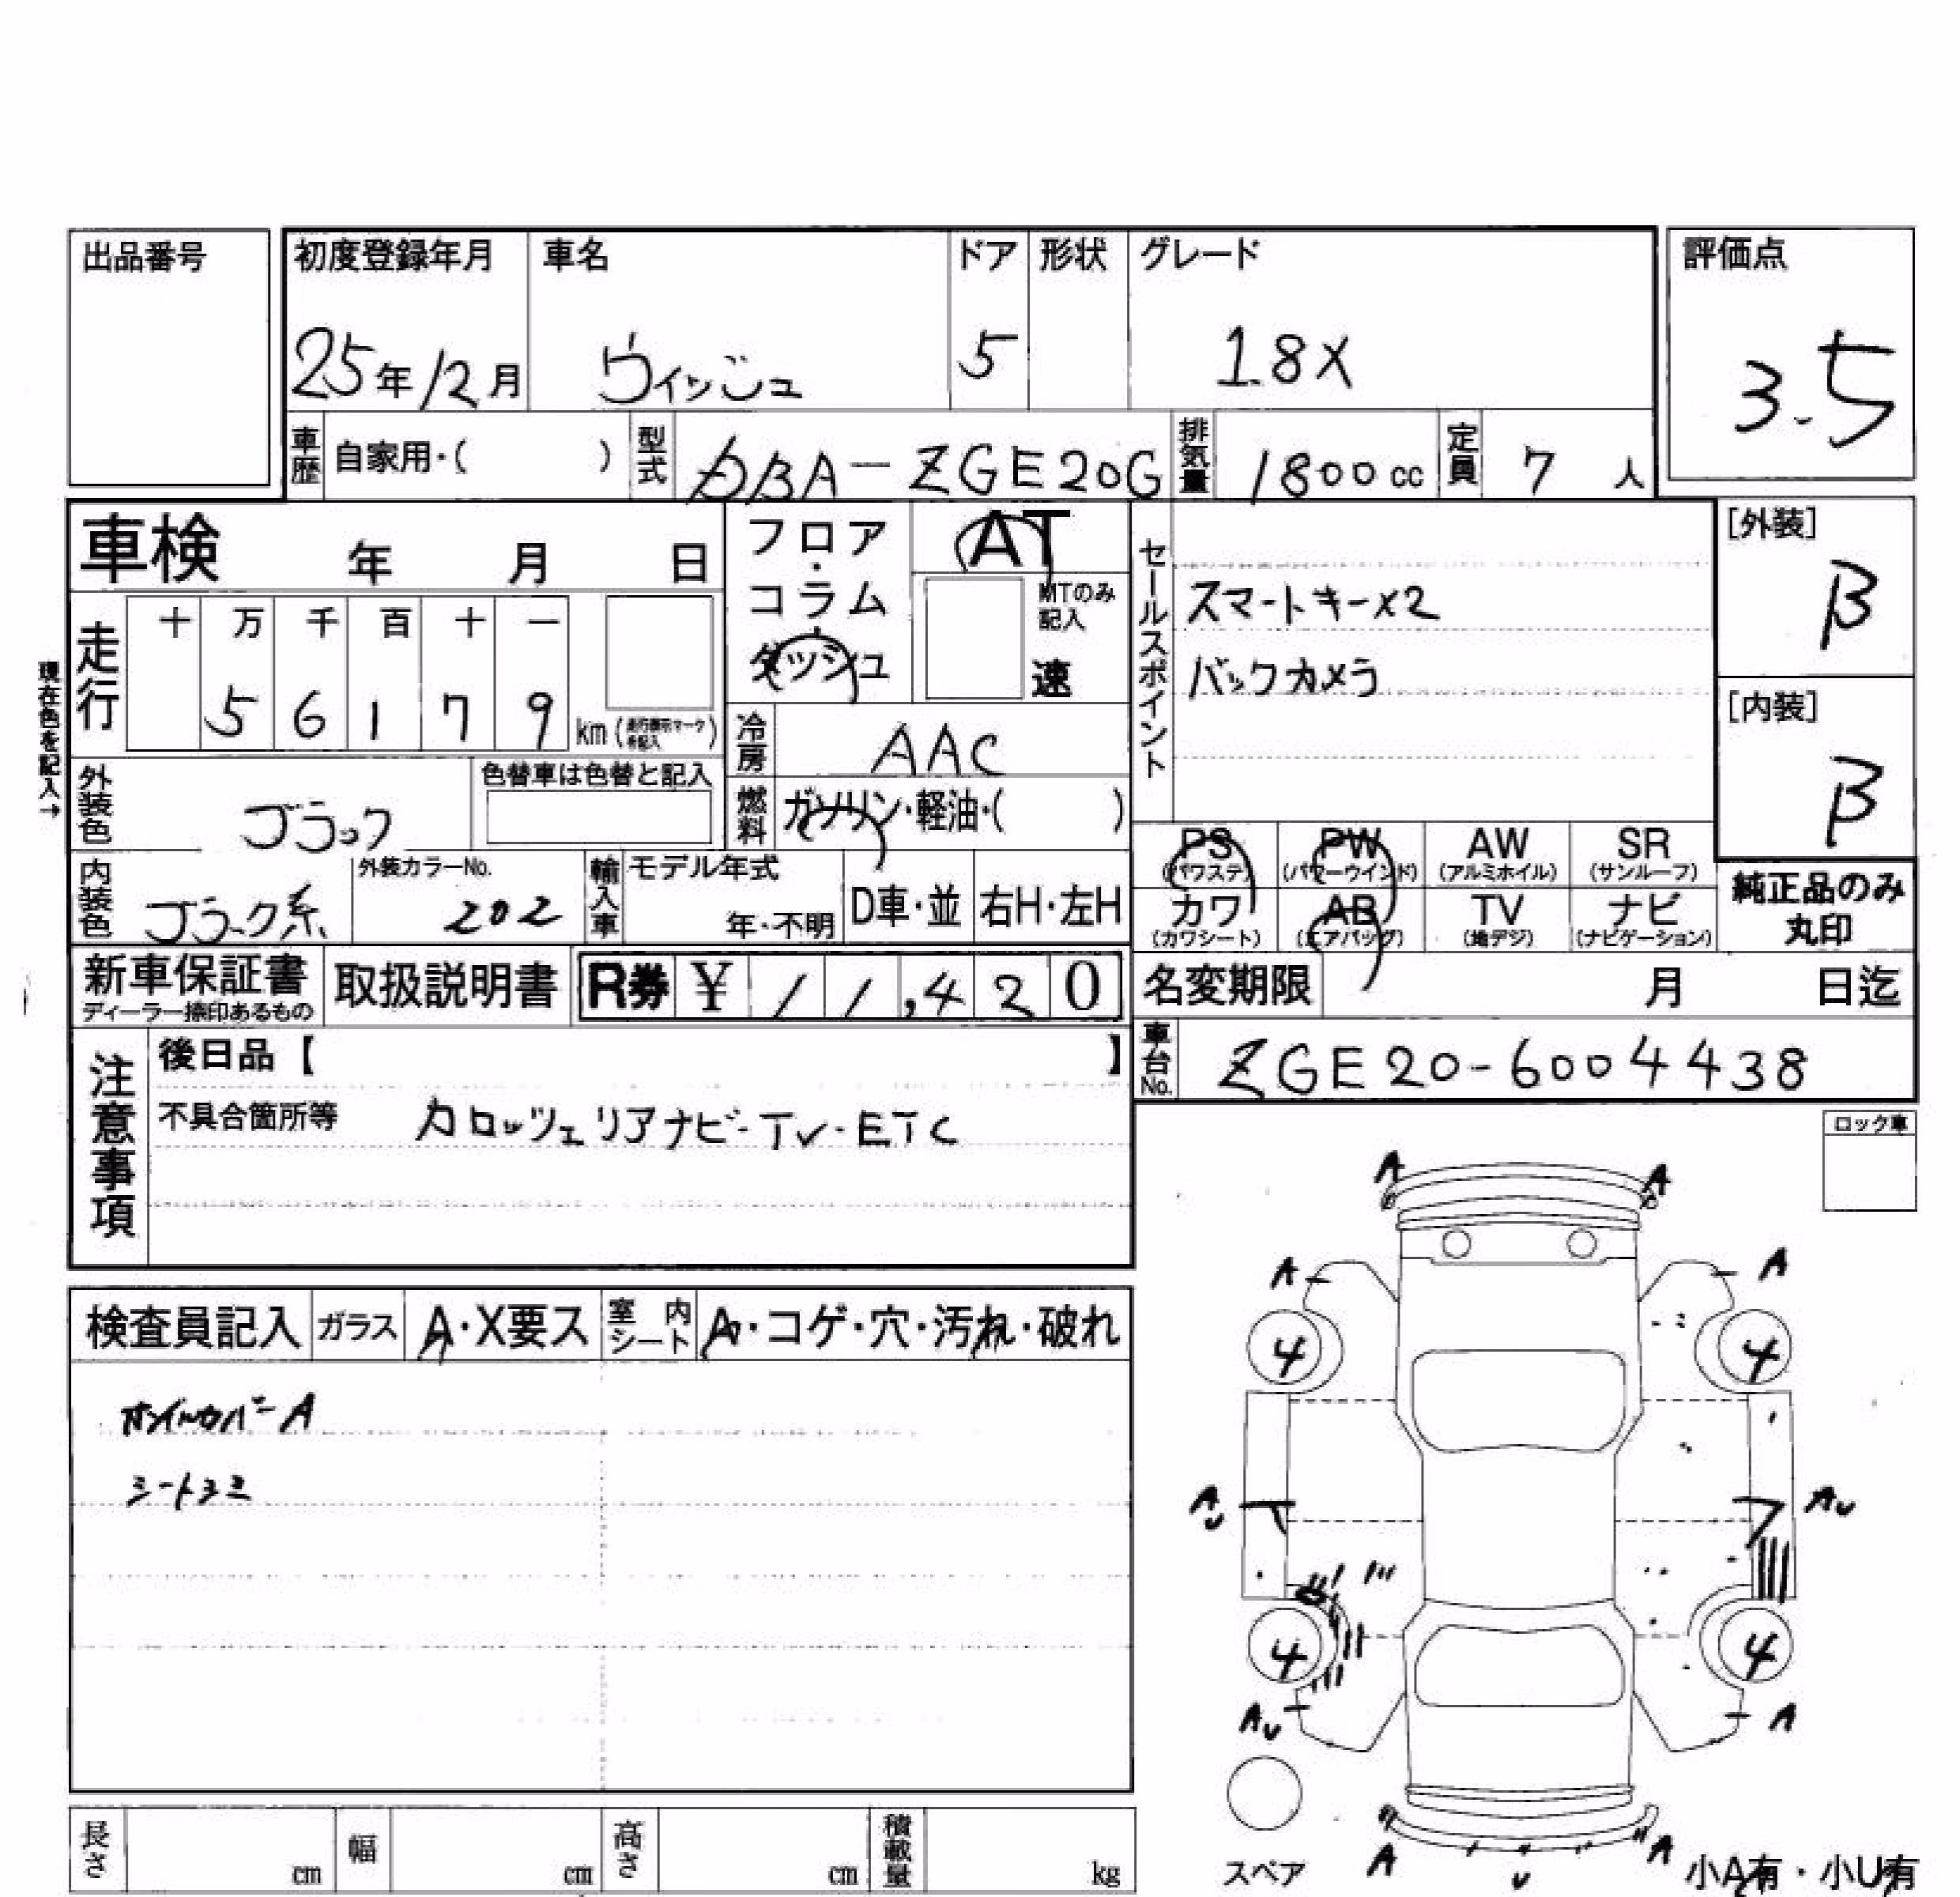 出品番号
初度登録年月 車名 ドア 形状 グレード 評価点
25年12月 ウィッシュ 5 1.8X 3.5
車歴 自家用・( ) 型式 DBA-ZGE20G 排気量 1800cc 定員 7人
車検 年 月 日
フロア・コラム・ダッシュ
AT
MTのみ記入
速
セールスポイント
スマートキー×2
バックカメラ
[外装]
β
[内装]
β
現在色を記入→
走行 十 万 千 百 十 一
5 6 1 7 9 km
冷房 AAC
燃料 ガソリン・軽油・( )
外装色 ブラック
色替車は色替と記入
内装色 ブラック系
外装カラーNo. 202
輸入車 モデル年式 年・不明 D車・並 右H・左H
PS (パワステ) PW (パワーウインド) AW (アルミホイル) SR (サンルーフ)
カワ (カワシート) AB (エアバッグ) TV (地デジ) ナビ (ナビゲーション)
純正品のみ丸印
新車保証書 ディーラー捺印あるもの 取扱説明書 R券 ¥ 11,420
名変期限 月 日迄
車台No. ZGE20-6004438
注意事項
後日品【 】
不具合箇所等 カロッツェリアナビ・TV・ETC
ロック車
検査員記入 ガラス A・X要ス 室内シート A・コゲ・穴・汚れ・破れ
ホイルカバーA
A A
A A
4 4
AU AU
4 4
AU A
A U A
スペア
小A有・小U有
長さ cm 幅 cm 高さ cm 積載量 kg